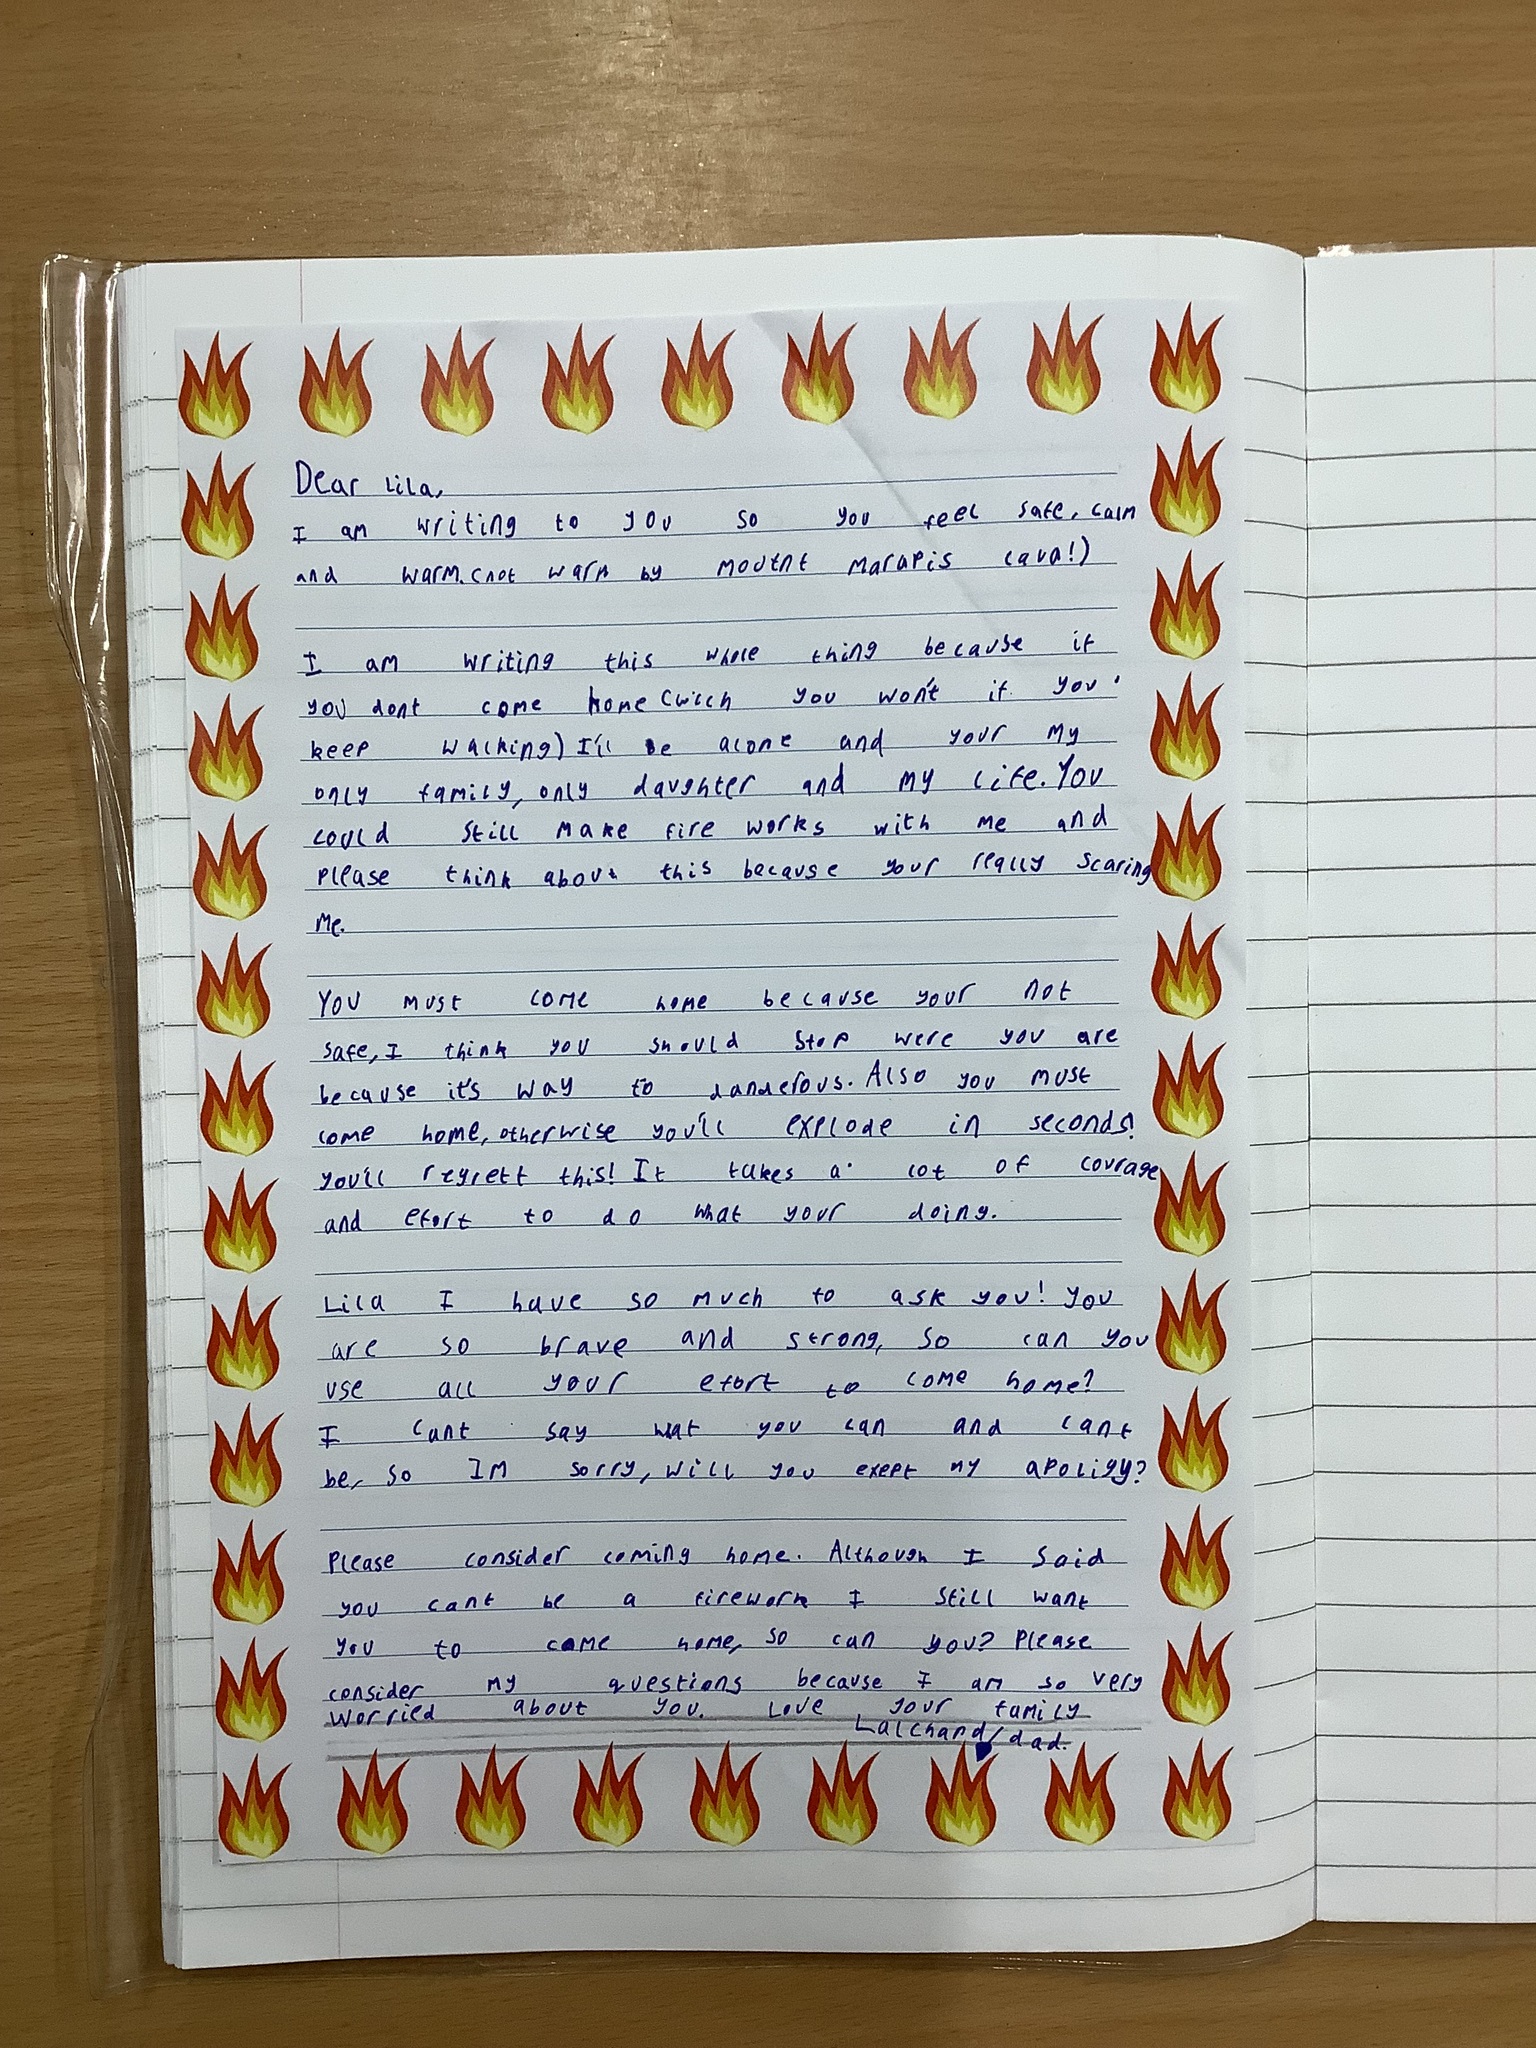 Dear Lila,
I am writing to you so you feel safe, calm
and warm. (not warm by moutnt marapis lava!)
I am writing this whole thing because if
you dont come home (wich you won't if you
keep walking) I'll be alone and your my
only family, only daughter and my life. You
could still make fire works with me and
please think about this because your really scaring
me.
You must come home because your not
safe, I think you should stop were you are
because it's way to danderous. Also you must
come home, otherwise you'll explode in seconds!
you'll regrett this! It takes a lot of courage
and efort to do what your doing.
Lila I have so much to ask you! you
are so brave and strong, so can you
use all your efort to come home?
I cant say wat you can and cant
be, so IM sorry, will you exept my apoligy?
Please consider coming home. Although I said
you cant be a firework I still want
you to come home, so can you? Please
consider my questions because I am so very
worried about you. Love your family
Lalchand/dad.